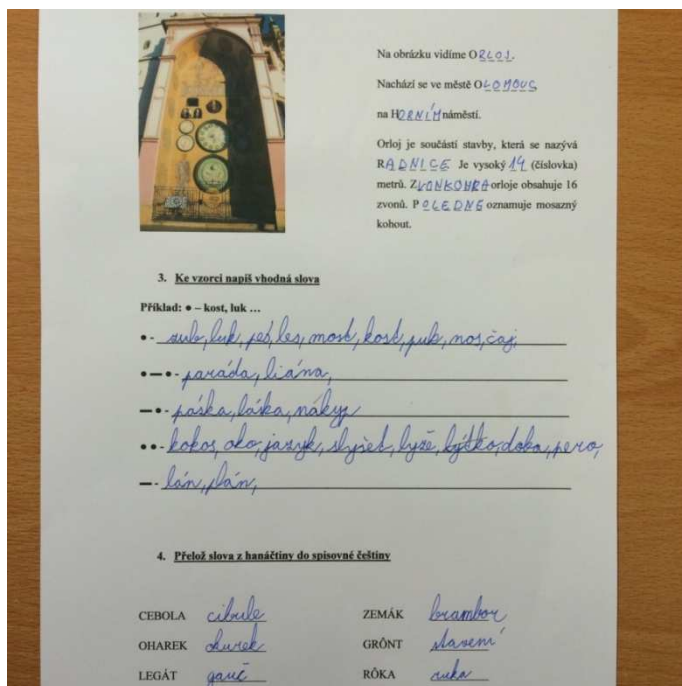 Na obrázku vidíme ORLOJ.
Nachází se ve městě OLOMOUC
na HORNÍM náměstí.
Orloj je součástí stavby, která se nazývá
RADNICE Je vysoký 14 (číslovka)
metrů. ZVONKOHRA orloje obsahuje 16
zvonů. POLEDNE oznamuje mosazný
kohout.
3. Ke vzorci napiš vhodná slova
Příklad: ● – kost, luk …
● - dub, luk, pes, les, most, kost, puk, nos, čaj,
● — ● - paráda, liána,
— ● - páska, láska, nákyp
● ● - kokos, oko, jazyk, slyšet, lyže, lýtko, doba, pero,
— - lán, plán,
4. Přelož slova z hanáčtiny do spisovné češtiny
CEBOLA cibule ZEMÁK brambor
OHAREK okurek GRÔNT stavení
LEGÁT gauč RÔKA ruka